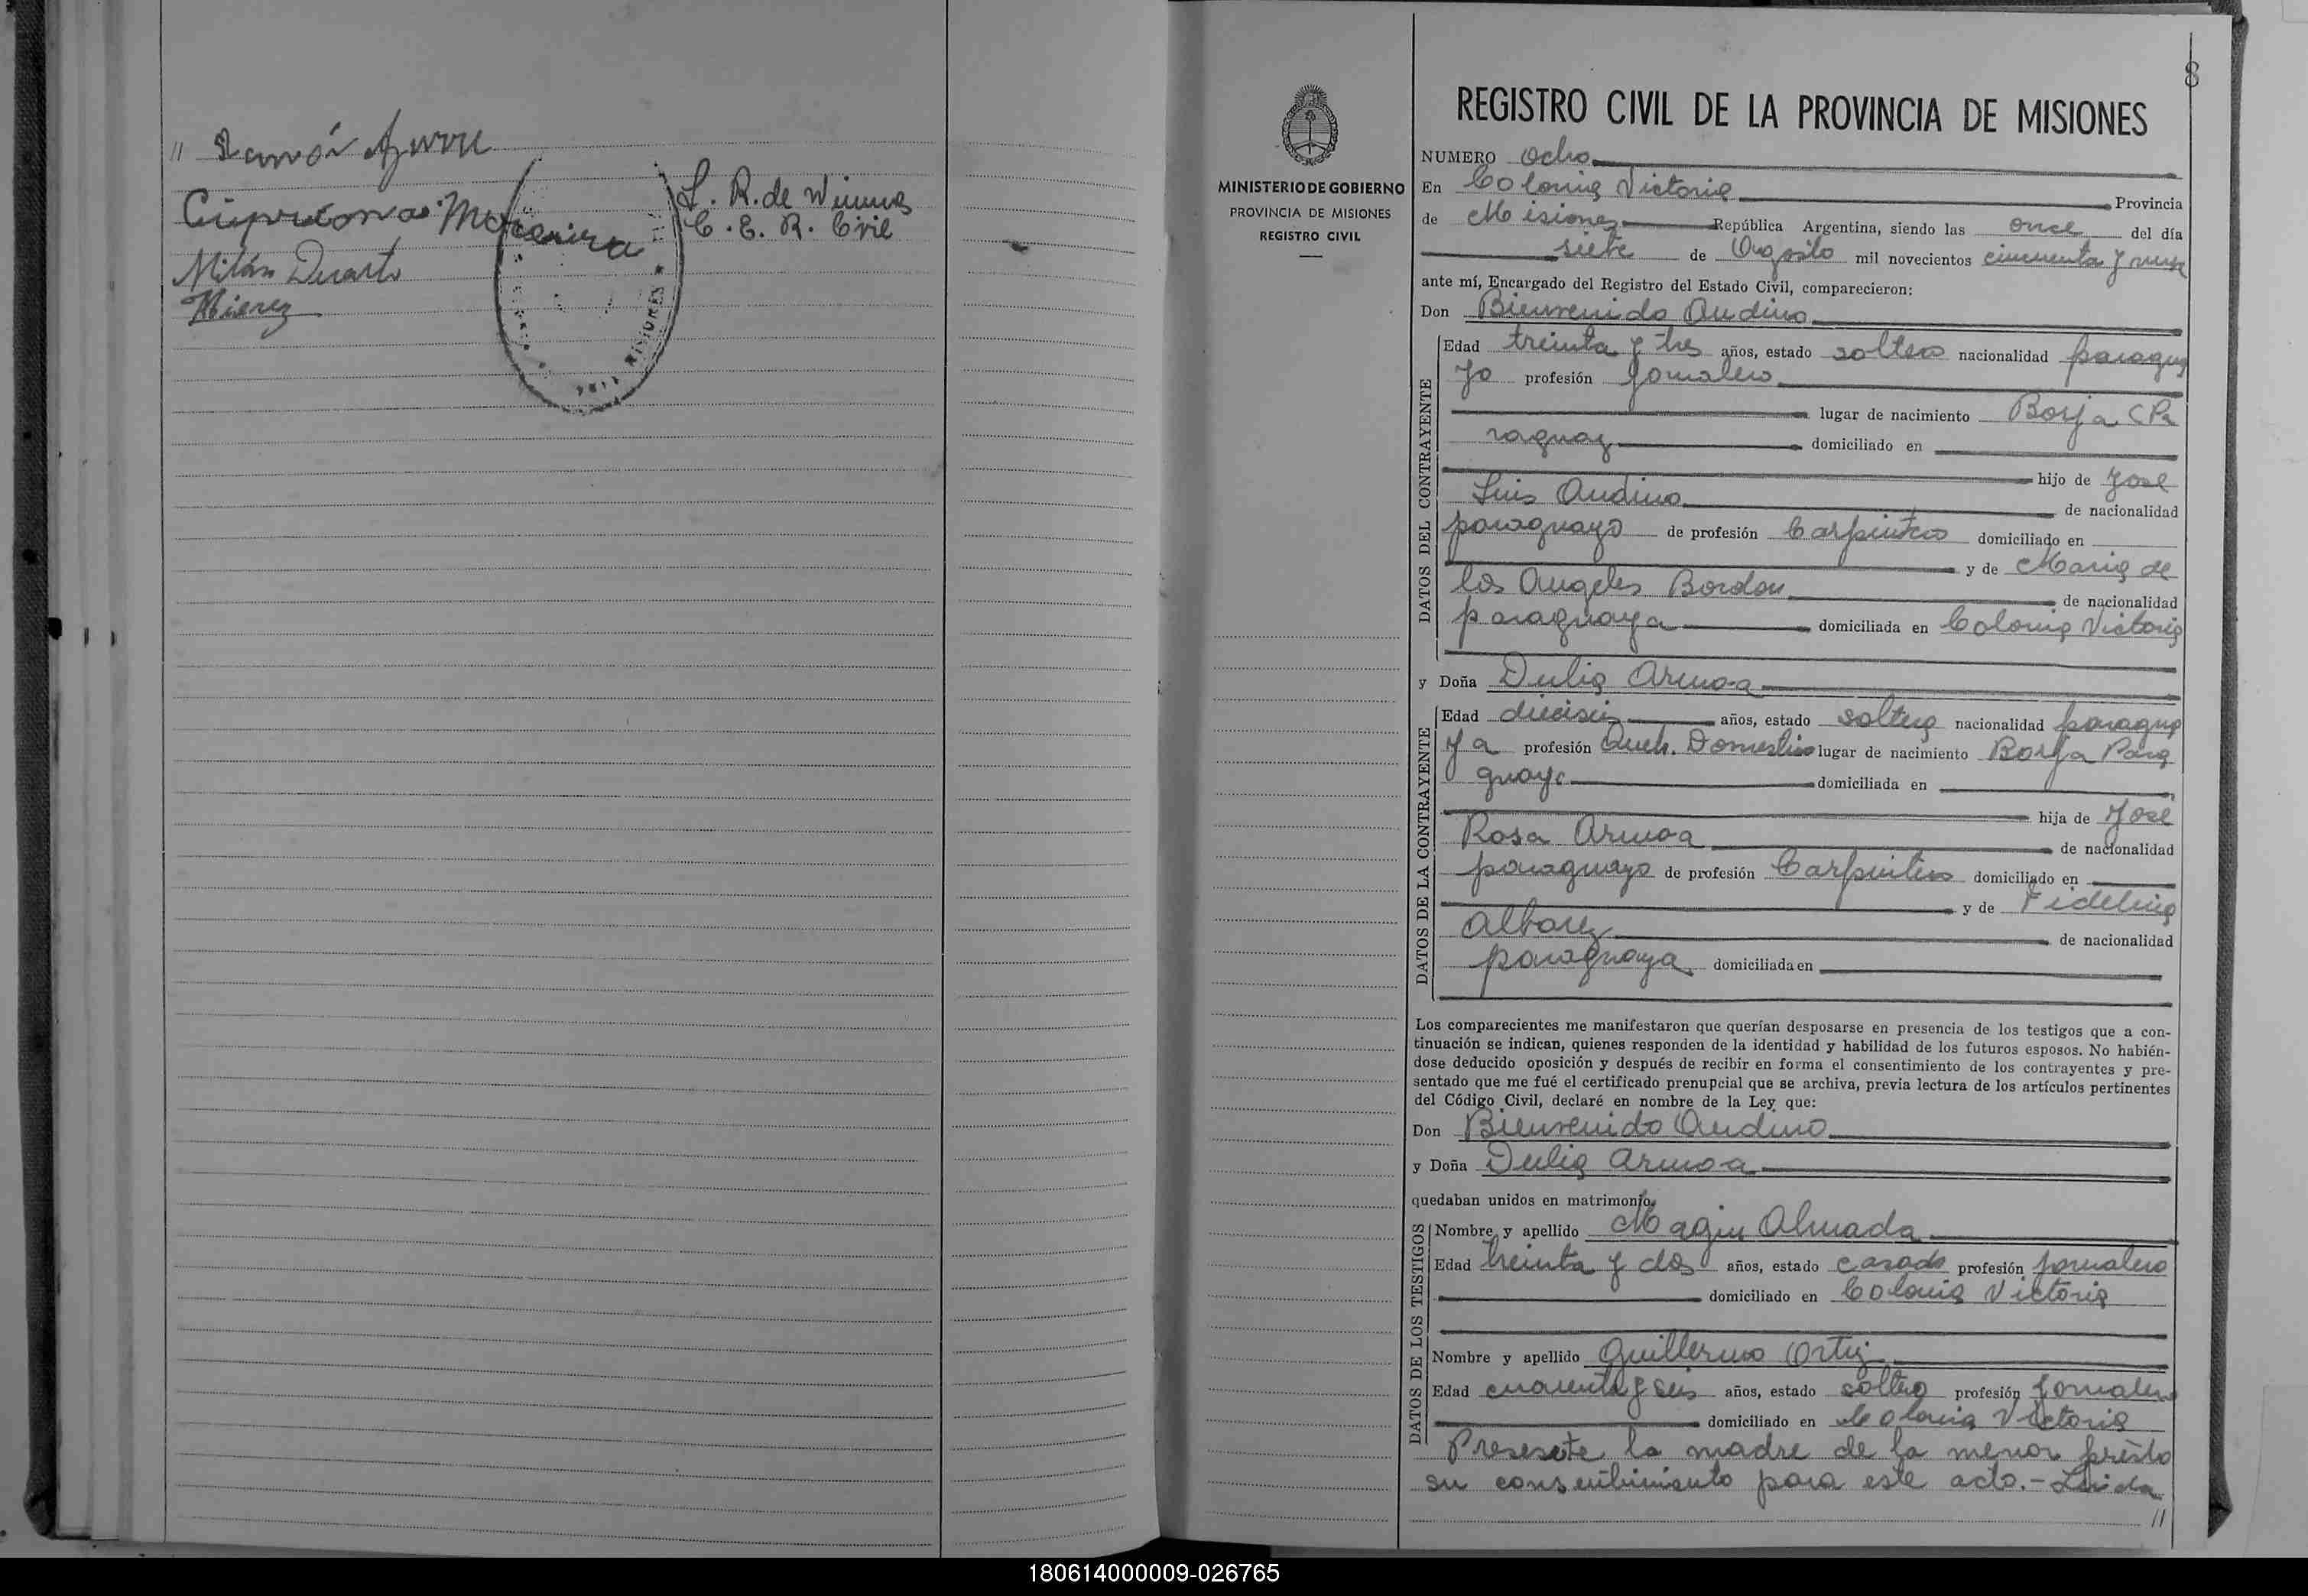 " Ramón
Cipriana Moreira
L. R. de
C. E. R. Civil
Milán Duarte
MISIONES
8
REGISTRO CIVIL DE LA PROVINCIA DE MISIONES
MINISTERIO DE GOBIERNO
PROVINCIA DE MISIONES
REGISTRO CIVIL
NUMERO Ocho
En Colonia Victoria Provincia
de Misiones República Argentina, siendo las once del día
siete de Agosto mil novecientos cincuenta y
ante mí, Encargado del Registro del Estado Civil, comparecieron:
Don Bienvenido Andino
DATOS DEL CONTRAYENTE
Edad treinta y tres años, estado soltero nacionalidad paragua
yo profesión Jornalero
lugar de nacimiento Borja (Pa
raguay domiciliado en
hijo de José
Luis Andino de nacionalidad
paraguayo de profesión Carpintero domiciliado en
y de Maria de
los Angeles Bordon de nacionalidad
paraguaya domiciliada en Colonia Victoria
y Doña Dulia Armoa
DATOS DE LA CONTRAYENTE
Edad dieciseis años, estado soltera nacionalidad paragua
ya profesión Queh. Domestico lugar de nacimiento Borja Para
guay domiciliada en
hija de José
Rosa Armoa de nacionalidad
paraguayo de profesión Carpintero domiciliado en
y de Fidelina
Albarez de nacionalidad
paraguaya domiciliada en
Los comparecientes me manifestaron que querían desposarse en presencia de los testigos que a con-
tinuación se indican, quienes responden de la identidad y habilidad de los futuros esposos. No habién-
dose deducido oposición y después de recibir en forma el consentimiento de los contrayentes y pre-
sentado que me fué el certificado prenupcial que se archiva, previa lectura de los artículos pertinentes
del Código Civil, declaré en nombre de la Ley que:
Don Bienvenido Andino
y Doña Dulia Armoa
quedaban unidos en matrimonio.
DATOS DE LOS TESTIGOS
Nombre y apellido Magin Almada
Edad treinta y dos años, estado casado profesión jornalero
domiciliado en Colonia Victoria
Nombre y apellido Guillermo Ortiz
Edad cuarenta y seis años, estado soltero profesión Jornalero
domiciliado en Colonia Victoria
Presente la madre de la menor presto
su consentimiento para este acto.- Leida
//
180614000009-026765